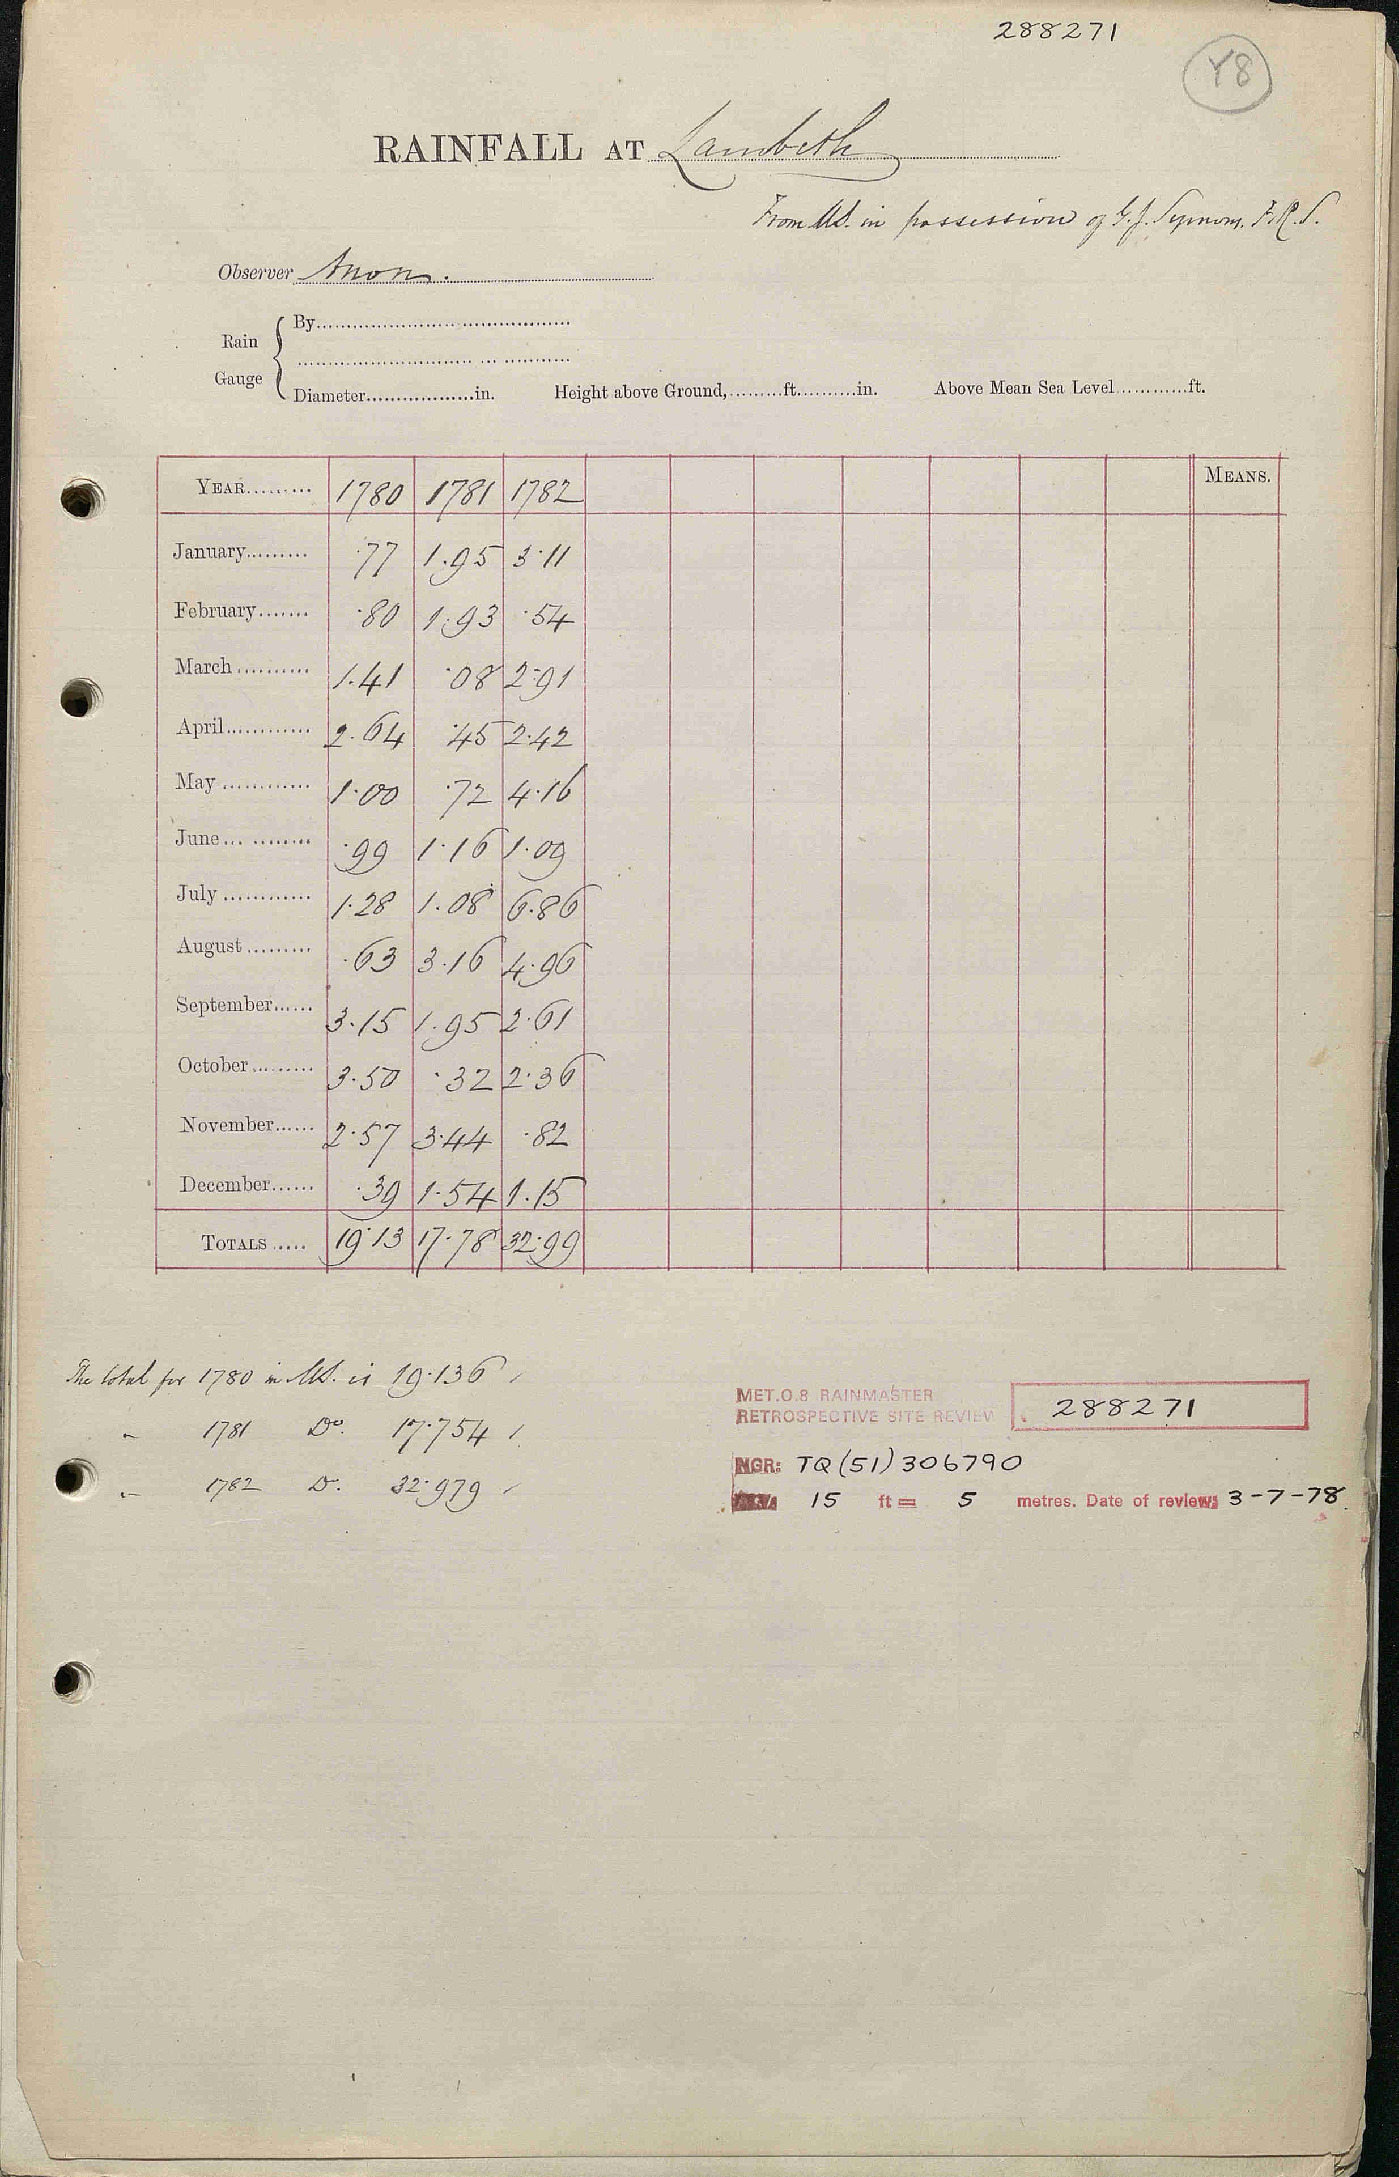 288271
Y8
RAINFALL AT Lambeth
From MS. in possession of G. J. Symons, F.R.S.
Observer Anon.
Rain Gauge
By
Diameter in. Height above Ground, ft. in. Above Mean Sea Level ft.
YEAR 1780 1781 1782 MEANS.
January .77 1.95 3.11
February .80 1.93 .54
March 1.41 .08 2.91
April 2.64 .45 2.42
May 1.00 .72 4.16
June .99 1.16 1.09
July 1.28 1.08 6.86
August .63 3.16 4.96
September 3.15 1.95 2.61
October 3.50 .32 2.36
November 2.57 3.44 .82
December .39 1.54 1.15
TOTALS 19.13 17.78 32.99
The total for 1780 in MS. is 19.136
" 1781 Do. 17.754
" 1782 Do. 32.979
MET.O.8 RAINMASTER
RETROSPECTIVE SITE REVIEW 288271
NGR: TQ (51) 306790
15 ft = 5 metres. Date of review: 3-7-78